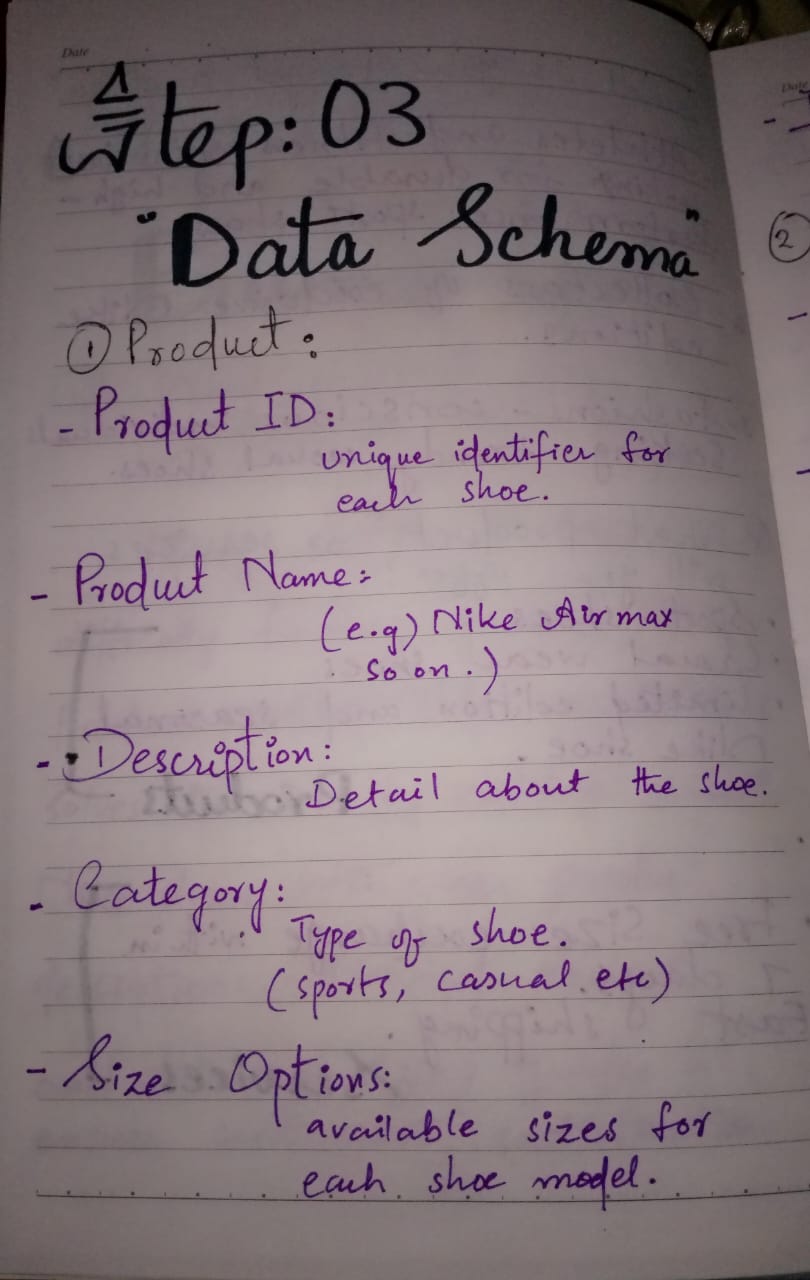 Date
Step: 03
"Data Schema"
① Product:
- Product ID:
unique identifier for
each shoe.
- Product Name:
(e.g) Nike Air max
so on.)
- Description:
Detail about the shoe.
- Category:
Type of shoe.
(sports, casual etc)
- Size Options:
available sizes for
each shoe model.
Date
②